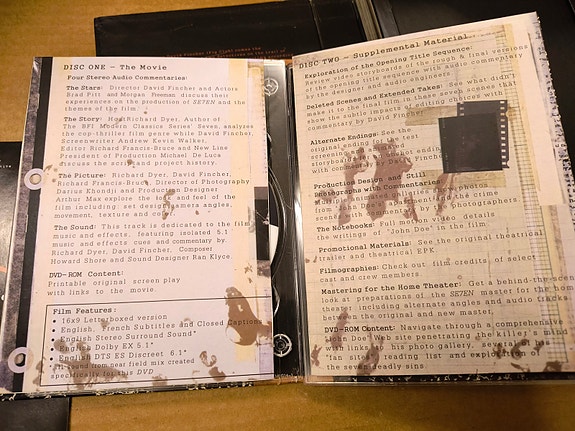 DISC ONE — The Movie
Four Stereo Audio Commentaries:
The Stars: Director David Fincher and Actors
Brad Pitt and Morgan Freeman discuss their
experiences on the production of SEVEN and the
themes of the film
The Story: Richard Dyer, Author of
The BFI Modern Classics Series' Seven, analyzes
the cop-thriller film genre while David Fincher,
Screenwriter Andrew Kevin Walker,
Editor Richard Francis-Bruce and New Line
President of Production Michael De Luca
discuss the script and project history.
The Picture: Richard Dyer, David Fincher,
Richard Francis-Bruce, Director of Photography
Darius Khondji and Production Designer
Arthur Max explore the and feel of the
film including set design, camera angles,
movement, texture and color.
The Sound: This track is dedicated to the film's
music and effects, featuring isolated 5.1
music and effects cues and commentary by
Richard Dyer, David Fincher, Composer
Howard Shore and Sound Designer Ren Klyce.
DVD-ROM Content:
Printable original screen play
with links to the movie.
Film Features:
• 16x9 Letterboxed version
• English, French Subtitles and Closed Captions
• English Stereo Surround Sound*
• English Dolby EX 5.1*
• English DTS ES Discreet 6.1*
*All sound from near field mix created
specifically for this DVD
DISC TWO — Supplemental Material
Exploration of the Opening Title Sequence:
Review video storyboards of the rough & final versions
of the opening title sequence with audio commentary
by the designer and audio engineers
Deleted Scenes and Extended Takes: See what didn't
make it to the final film then see scenes that
show the subtle impacts of editing choices with
commentary by David Fincher
Alternate Endings: See the test
screening ending
storyboarded ending
with commentary by David Fincher
Production Design Still
Photographs with Commentaries:
from John Doe's photos
scenes with the crime
documented photographers
The Notebooks: Full motion video details
the writings of "John Doe" in the film
Promotional Materials: See the original theatrical
trailer and theatrical EPK
Filmographies: Check out film credits of select
cast and crew members.
Mastering for the Home Theater: Get a behind-the-scenes
look at preparations of the SEVEN master for the home
theater including alternate angles and audio tracks
between the original and new master.
DVD-ROM Content: Navigate through a comprehensive
"John Doe" site penetrating the killer's mind
with links to his photo gallery,
"fan site" reading list and exploration of
the seven deadly sins